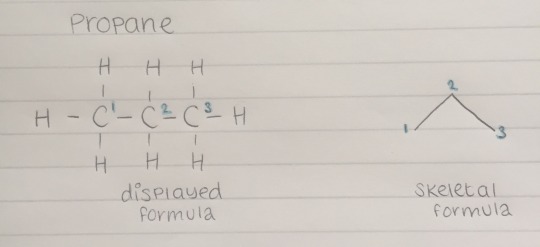 Propane
H H H
H - C¹ - C² - C³ - H
H H H
displayed
formula
2
1 3
skeletal
formula